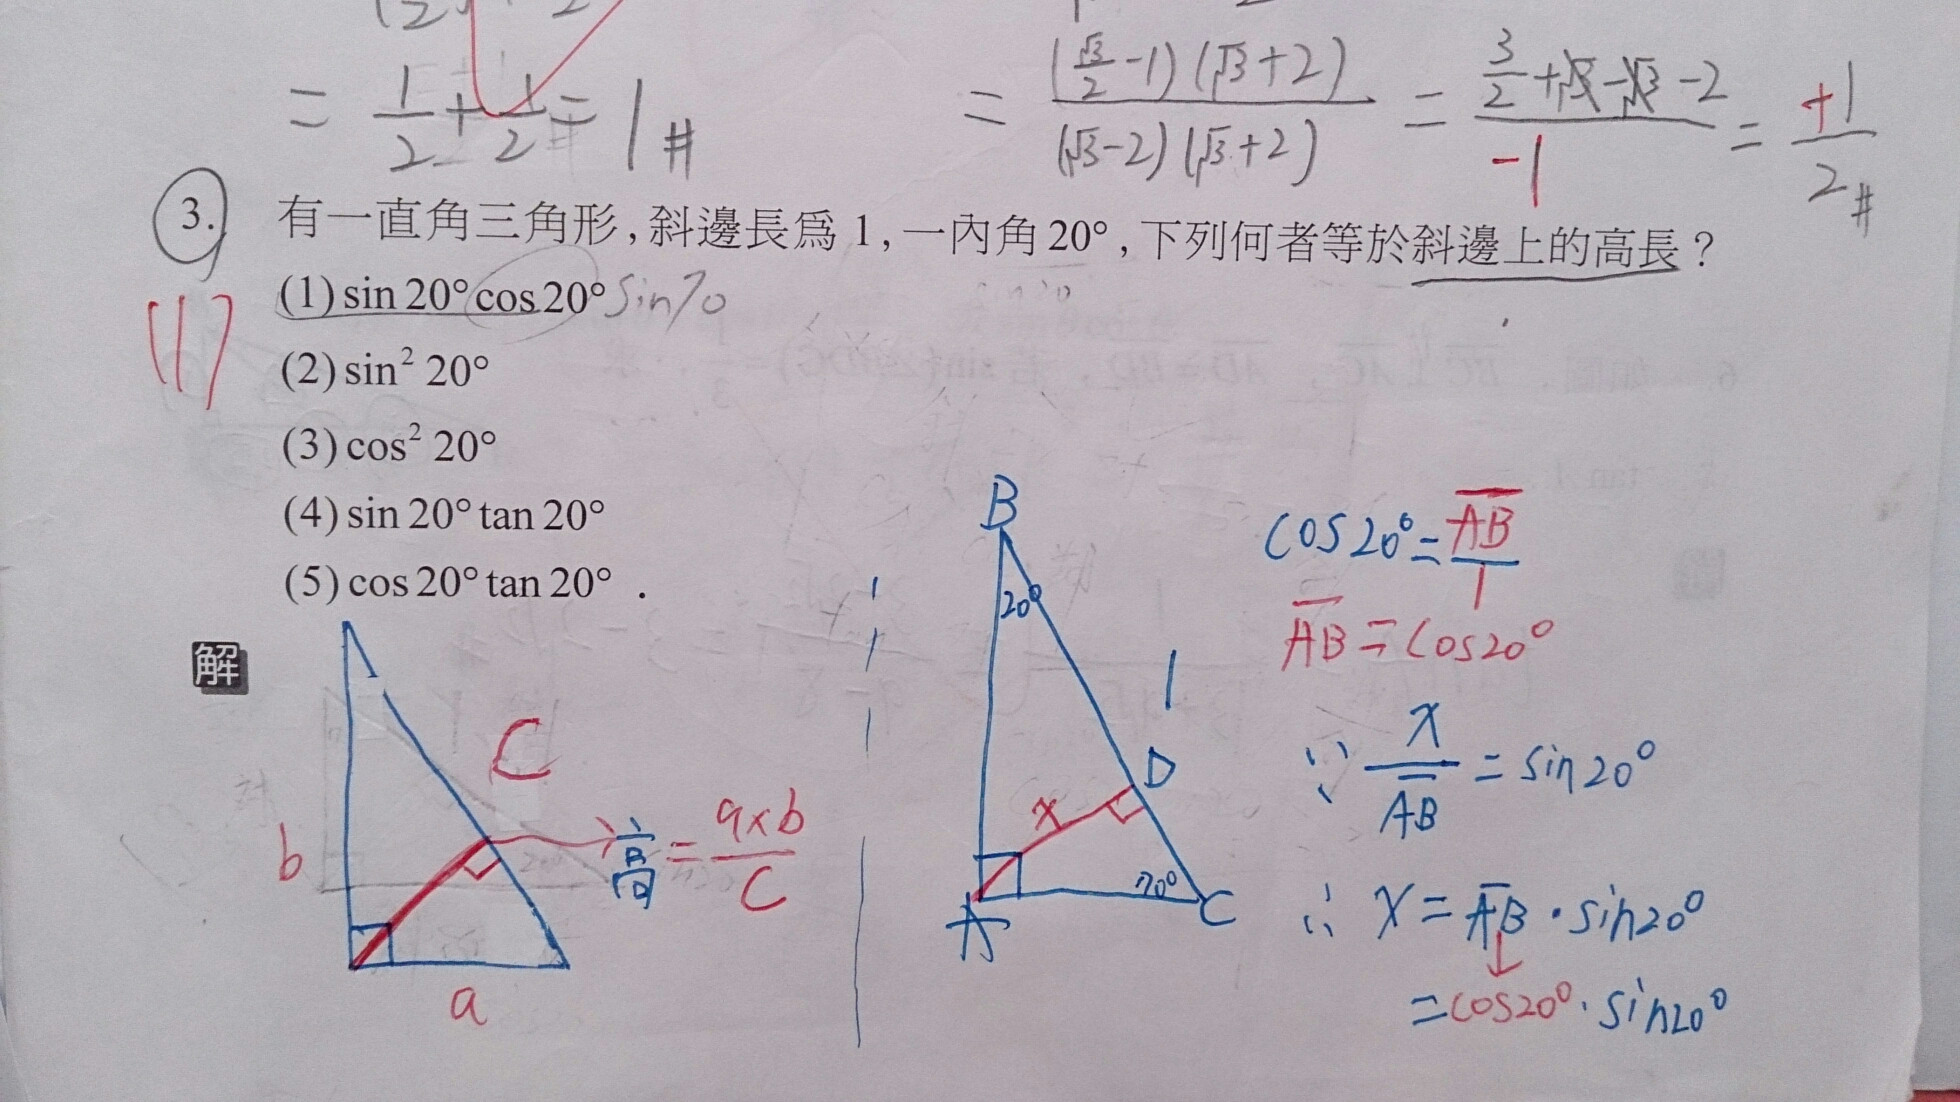 = 1/2 + 1/2 = 1 #
= (√3/2 -1)(√3+2) / (√3-2)(√3+2) = 3/2 +√3-√3-2 / -1 = +1/2 #
3. 有一直角三角形,斜邊長爲1,一內角20°,下列何者等於斜邊上的高長?
(1) sin 20° cos 20° sin70
(1)
(2) sin² 20°
(3) cos² 20°
(4) sin 20° tan 20°
(5) cos 20° tan 20° .
解
C
b
高 = a×b / C
a
B
20°
1
D
x
70°
A
C
cos20° = AB / 1
AB = cos20°
∵ x / AB = sin20°
∴ x = AB · sin20°
= cos20° · sin20°